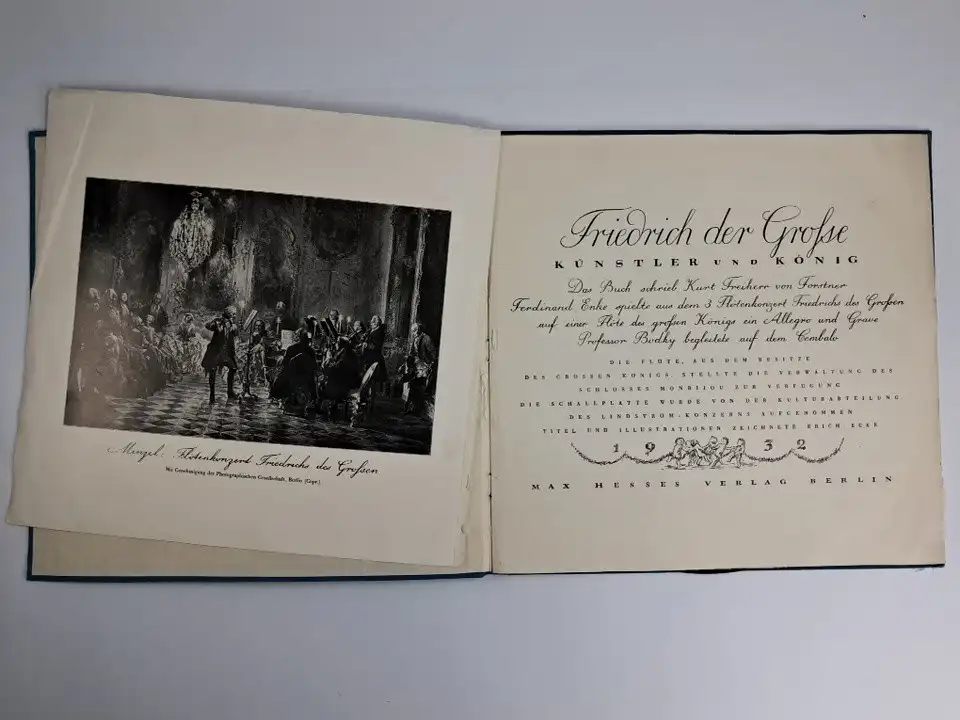 Menzel: Flötenkonzert Friedrichs des Großen
Mit Genehmigung der Photographischen Gesellschaft, Berlin (Copr.)
Friedrich der Große
KÜNSTLER UND KÖNIG
Das Buch schrieb Kurt Freiherr von Forstner
Ferdinand Enke spielte aus dem 3 Flötenkonzert Friedrichs des Großen
auf einer Flöte des großen Königs ein Allegro und Grave
Professor Bodky begleitete auf dem Cembalo
DIE FLÖTE, AUS DEM BESITZE
DES GROSSEN KÖNIGS, STELLTE DIE VERWALTUNG DES
SCHLOSSES MONBIJOU ZUR VERFÜGUNG
DIE SCHALLPLATTE WURDE VON DER KULTURABTEILUNG
DES LINDSTRÖM-KONZERNS AUFGENOMMEN
TITEL UND ILLUSTRATIONEN ZEICHNETE ERICH ECKE
1932
MAX HESSES VERLAG BERLIN